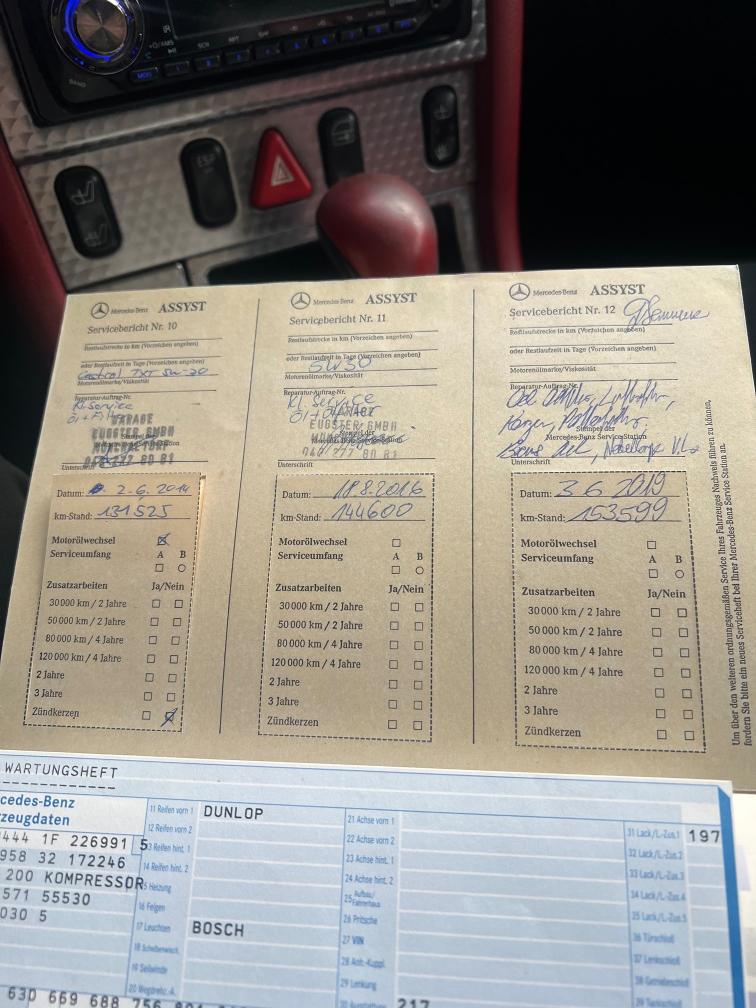 BAND
MOD
ESP
Mercedes-Benz ASSYST
Servicebericht Nr. 10
Restlaufstrecke in km (Vorzeichen angeben)
oder Restlaufzeit in Tage (Vorzeichen angeben)
Castrol TXT 5W-30
Motorenölmarke/Viskosität
Reparatur-Auftrag-Nr.
Kl. Service
Öl + Filter
GARAGE
EUGSTER GMBH
Unterschrift
Datum: 2.6.2014
km-Stand: 131525
Motorölwechsel
Serviceumfang A B
Zusatzarbeiten Ja/Nein
30 000 km / 2 Jahre
50 000 km / 2 Jahre
80 000 km / 4 Jahre
120 000 km / 4 Jahre
2 Jahre
3 Jahre
Zündkerzen
Mercedes-Benz ASSYST
Servicebericht Nr. 11
Restlaufstrecke in km (Vorzeichen angeben)
oder Restlaufzeit in Tage (Vorzeichen angeben)
5W30
Motorenölmarke/Viskosität
Reparatur-Auftrag-Nr.
Kl. Service
Öl + Filter
GARAGE
EUGSTER GMBH
Stempel der
Mercedes-Benz Service-Station
Unterschrift
Datum: 18.8.2016
km-Stand: 144600
Motorölwechsel
Serviceumfang A B
Zusatzarbeiten Ja/Nein
30 000 km / 2 Jahre
50 000 km / 2 Jahre
80 000 km / 4 Jahre
120 000 km / 4 Jahre
2 Jahre
3 Jahre
Zündkerzen
Mercedes-Benz ASSYST
Servicebericht Nr. 12
Restlaufstrecke in km (Vorzeichen angeben)
oder Restlaufzeit in Tage (Vorzeichen angeben)
Motorenölmarke/Viskosität
Reparatur-Auftrag-Nr.
Stempel der
Mercedes-Benz Service-Station
Unterschrift
Datum: 3 6 2019
km-Stand: 153599
Motorölwechsel
Serviceumfang A B
Zusatzarbeiten Ja/Nein
30 000 km / 2 Jahre
50 000 km / 2 Jahre
80 000 km / 2 Jahre
120 000 km / 4 Jahre
2 Jahre
3 Jahre
Zündkerzen
Um über den weiteren ordnungsgemäßen Service Ihres Fahrzeuges Nachweis führen zu können,
fordern Sie bitte ein neues Serviceheft bei Ihrer Mercedes-Benz Service Station an.
WARTUNGSHEFT
cedes-Benz
zeugdaten
444 1F 226991 5
958 32 172246
200 KOMPRESSOR
571 55530
030 5
630 669 688 756
11 Reifen vorn 1 DUNLOP
12 Reifen vorn 2
13 Reifen hint. 1
14 Reifen hint. 2
15 Heizung
16 Felgen
17 Leuchten BOSCH
18 Scheibenwisch.
19 Seilwinde
21 Achse vorn 1
22 Achse vorn 2
23 Achse hint. 1
24 Achse hint. 2
25 Aufbau/
Fahrerhaus
26 Pritsche
27 VIN
28 Anh.-Kuppl.
29 Lenkung
217
31 Lack/L-Zus.1 197
32 Lack/L-Zus.2
33 Lack/L-Zus.3
34 Lack/L-Zus.4
35 Lack/L-Zus.5
36 Türschloß
37 Lenkschloß